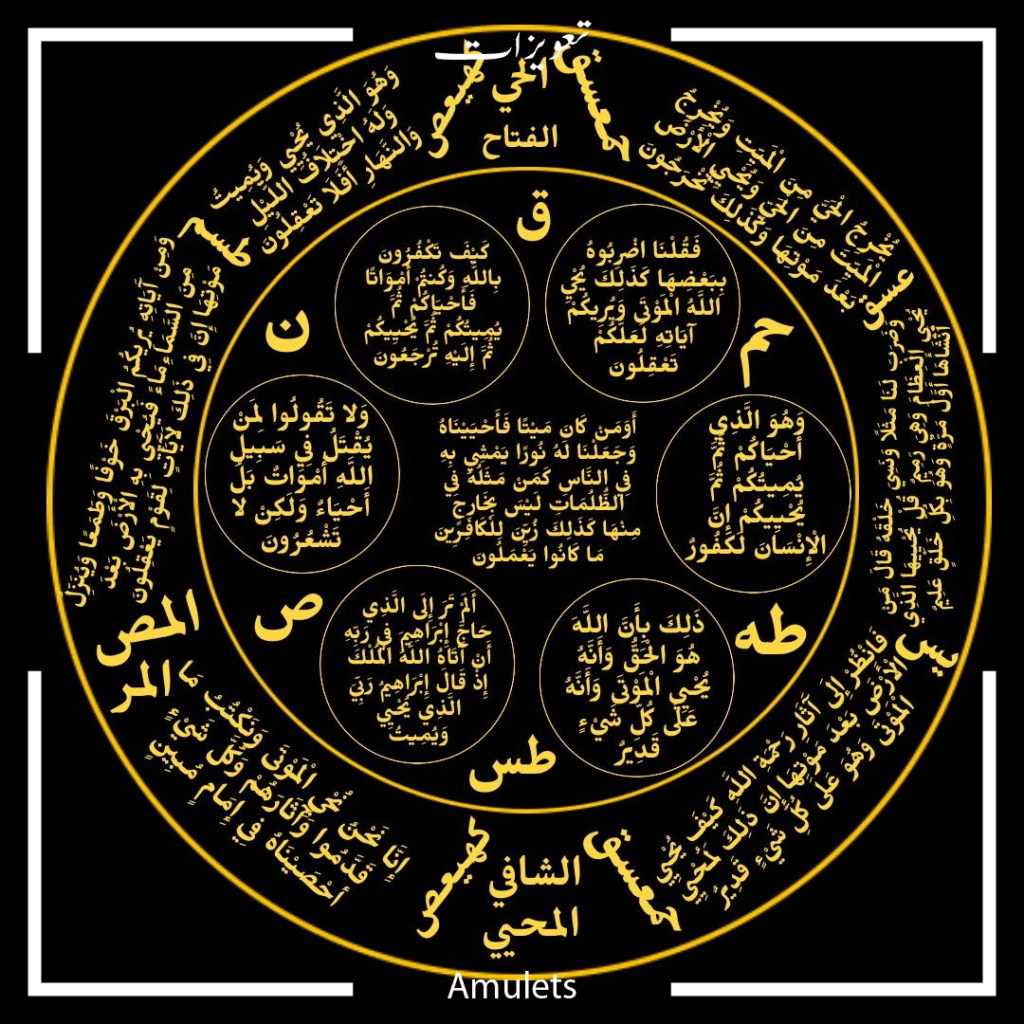 تعویزات
كهيعص
الحي
حمعسق
الفتاح
وَهُوَ الَّذِي يُحْيِي وَيُمِيتُ
وَلَهُ اخْتِلَافُ اللَّيْلِ
وَالنَّهَارِ أَفَلَا تَعْقِلُونَ
يُخْرِجُ الْحَيَّ مِنَ الْمَيِّتِ وَيُخْرِجُ
الْمَيِّتَ مِنَ الْحَيِّ وَيُحْيِي الْأَرْضَ
بَعْدَ مَوْتِهَا وَكَذَلِكَ تُخْرَجُونَ
عسق
وَضَرَبَ لَنَا مَثَلًا وَنَسِيَ خَلْقَهُ قَالَ مَنْ
يُحْيِي الْعِظَامَ وَهِيَ رَمِيمٌ قُلْ يُحْيِيهَا الَّذِي
أَنْشَأَهَا أَوَّلَ مَرَّةٍ وَهُوَ بِكُلِّ خَلْقٍ عَلِيمٌ
يس
فَانْظُرْ إِلَى آثَارِ رَحْمَةِ اللَّهِ كَيْفَ يُحْيِي
الْأَرْضَ بَعْدَ مَوْتِهَا إِنَّ ذَلِكَ لَمُحْيِي
الْمَوْتَى وَهُوَ عَلَى كُلِّ شَيْءٍ قَدِيرٌ
حمعسق
الشافي
المحيي
كهيعص
إِنَّا نَحْنُ نُحْيِي الْمَوْتَى وَنَكْتُبُ مَا
قَدَّمُوا وَآثَارَهُمْ وَكُلَّ شَيْءٍ
أَحْصَيْنَاهُ فِي إِمَامٍ مُبِينٍ
المص
المر
وَمِنْ آيَاتِهِ يُرِيكُمُ الْبَرْقَ خَوْفًا وَطَمَعًا وَيُنَزِّلُ
مِنَ السَّمَاءِ مَاءً فَيُحْيِي بِهِ الْأَرْضَ بَعْدَ
مَوْتِهَا إِنَّ فِي ذَلِكَ لَآيَاتٍ لِقَوْمٍ يَعْقِلُونَ
ق
حم
طه
طس
ص
ن
فَقُلْنَا اضْرِبُوهُ
بِبَعْضِهَا كَذَلِكَ يُحْيِ
اللَّهُ الْمَوْتَى وَيُرِيكُمْ
آيَاتِهِ لَعَلَّكُمْ
تَعْقِلُونَ
كَيْفَ تَكْفُرُونَ
بِاللَّهِ وَكُنْتُمْ أَمْوَاتًا
فَأَحْيَاكُمْ ثُمَّ
يُمِيتُكُمْ ثُمَّ يُحْيِيكُمْ
ثُمَّ إِلَيْهِ تُرْجَعُونَ
وَهُوَ الَّذِي
أَحْيَاكُمْ ثُمَّ
يُمِيتُكُمْ ثُمَّ
يُحْيِيكُمْ إِنَّ
الْإِنْسَانَ لَكَفُورٌ
أَوَمَن كَانَ مَيْتًا فَأَحْيَيْنَاهُ
وَجَعَلْنَا لَهُ نُورًا يَمْشِي بِهِ
فِي النَّاسِ كَمَن مَّثَلُهُ فِي
الظُّلُمَاتِ لَيْسَ بِخَارِجٍ
مِنْهَا كَذَلِكَ زُيِّنَ لِلْكَافِرِينَ
مَا كَانُوا يَعْمَلُونَ
وَلَا تَقُولُوا لِمَنْ
يُقْتَلُ فِي سَبِيلِ
اللَّهِ أَمْوَاتٌ بَلْ
أَحْيَاءٌ وَلَكِنْ لَا
تَشْعُرُونَ
ذَلِكَ بِأَنَّ اللَّهَ
هُوَ الْحَقُّ وَأَنَّهُ
يُحْيِي الْمَوْتَى وَأَنَّهُ
عَلَى كُلِّ شَيْءٍ
قَدِيرٌ
أَلَمْ تَرَ إِلَى الَّذِي
حَاجَّ إِبْرَاهِيمَ فِي رَبِّهِ
أَنْ آتَاهُ اللَّهُ الْمُلْكَ
إِذْ قَالَ إِبْرَاهِيمُ رَبِّيَ
الَّذِي يُحْيِي
وَيُمِيتُ
Amulets